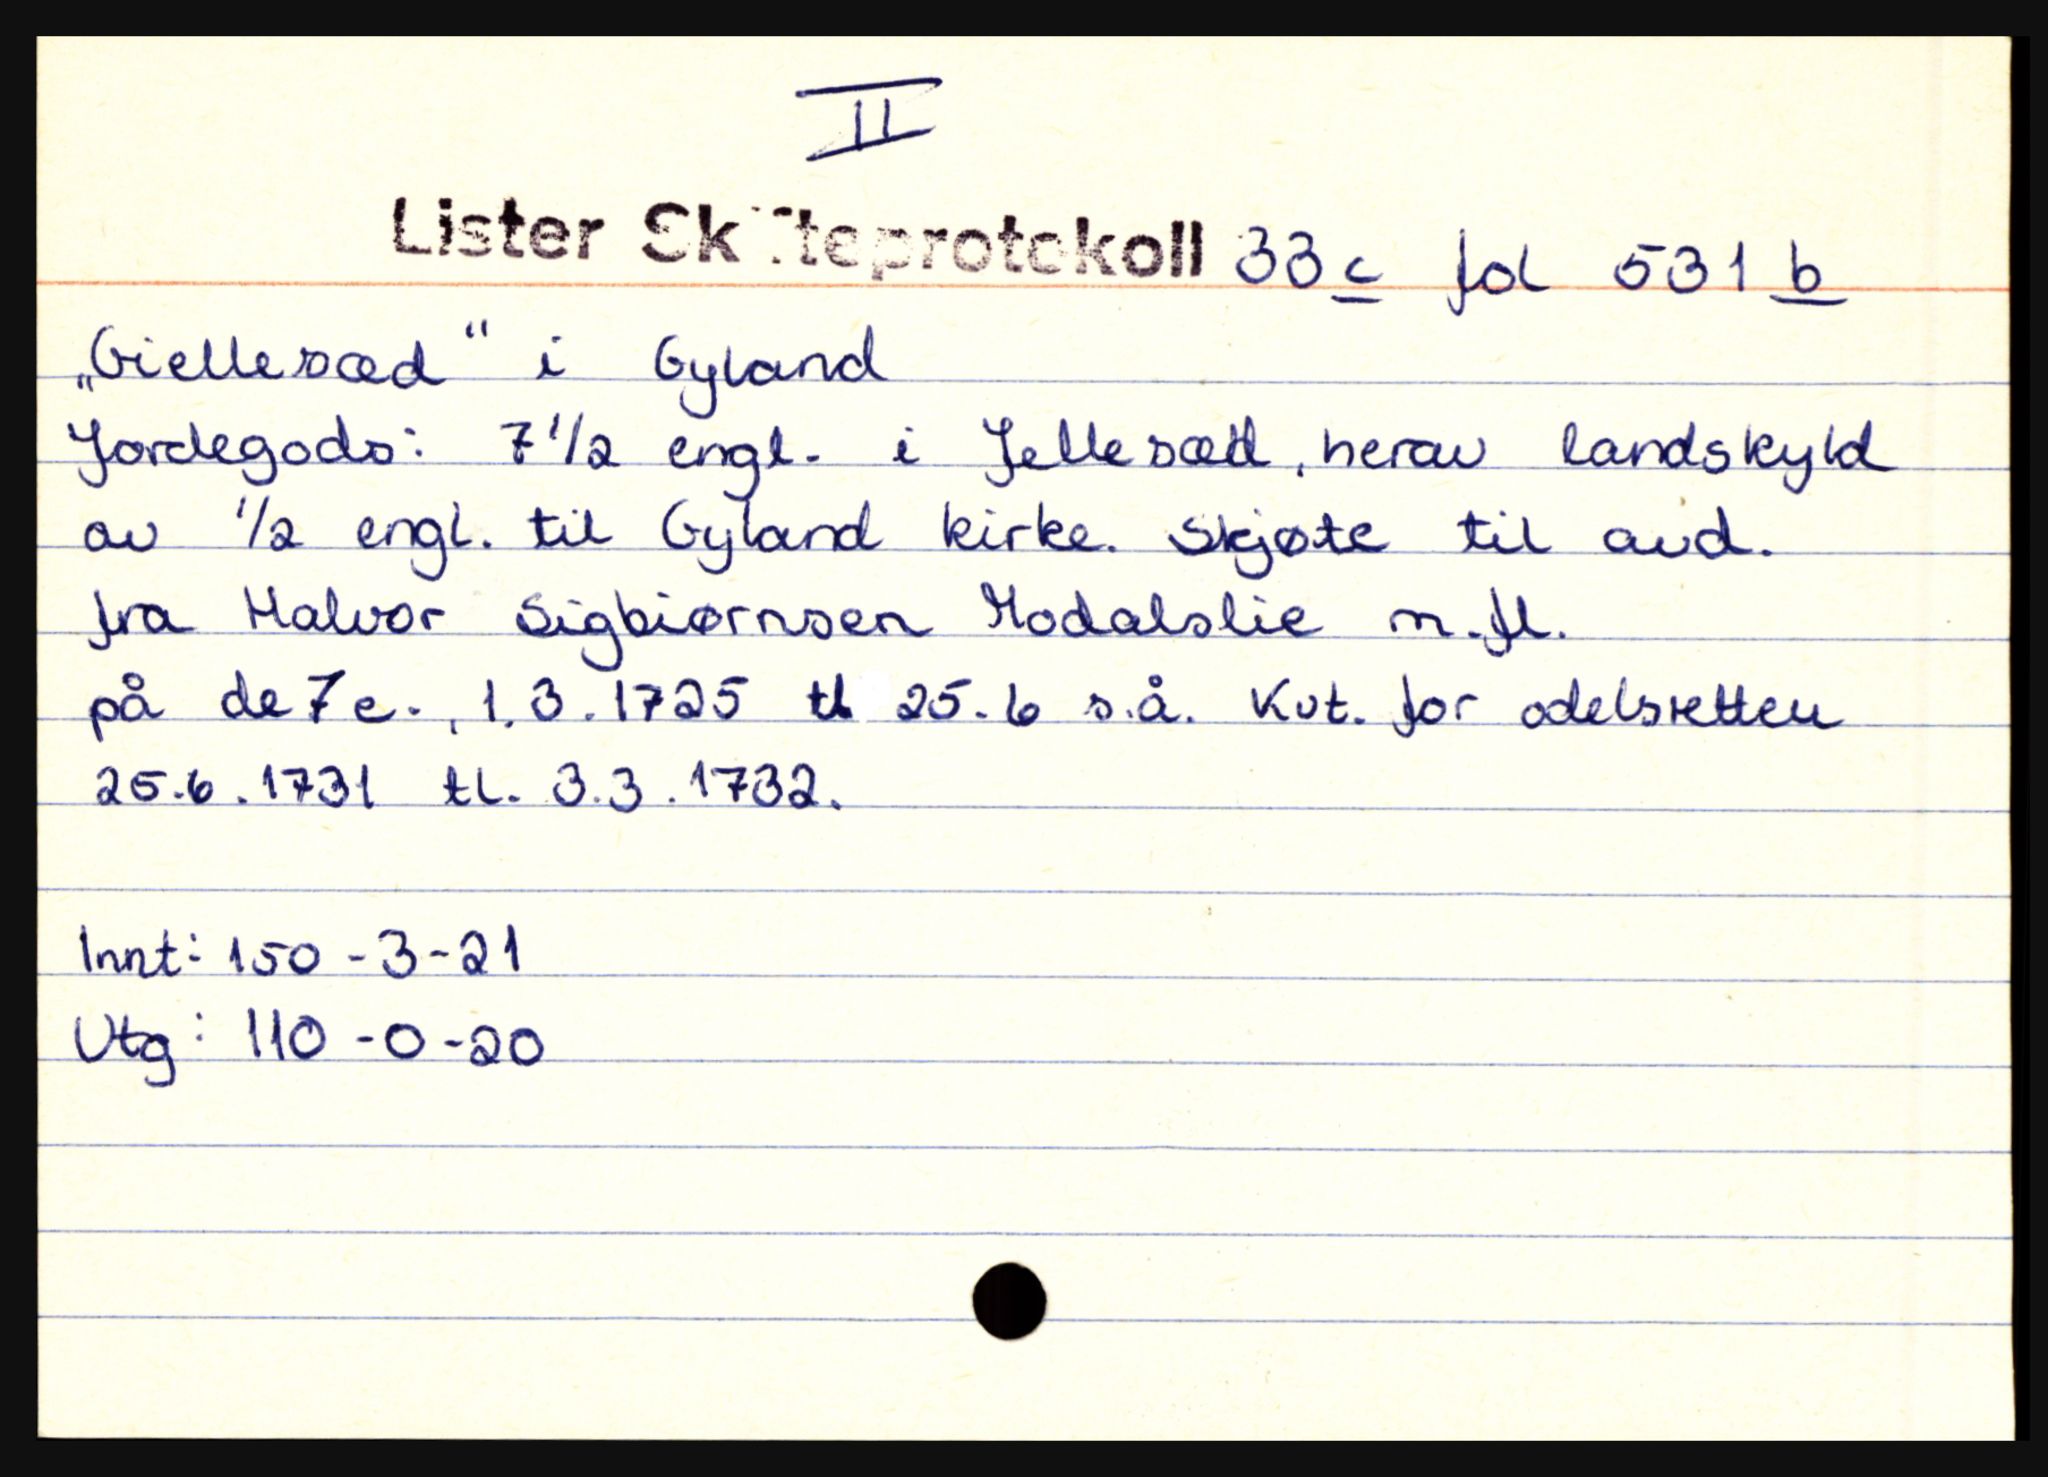 II
Lister Skifteprotokoll 33c fol 531 b
„Giellesæd“ i Gyland
Jordegods: 7 1/2 engl. i Jellesæd, herav landskyld
av 1/2 engl. til Gyland kirke. Skjøte til avd.
fra Halvor Sigbiørnsen Modalslie m.fl.
på de 7 e., 1.3.1725 tl 25.6 s.å. Kvt. for odelsretten
25.6.1731 tl. 3.3.1732.
Innt: 150-3-21
Utg: 110-0-20